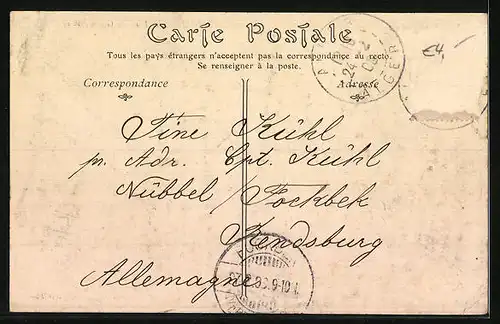 Carte Postale
Tous les pays étrangers n'acceptent pas la correspondance au recto.
Se renseigner à la poste.
Correspondance
Adresse
ALGER
€4,-
Tine Kühl
pr. Adr. Cpt. Kühl
Nübbel / Fockbek
Rendsburg
Allemagne